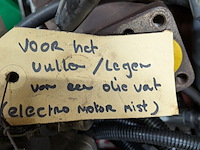 VOOR het
vullen / legen
van een olie vat
(electro motor mist)